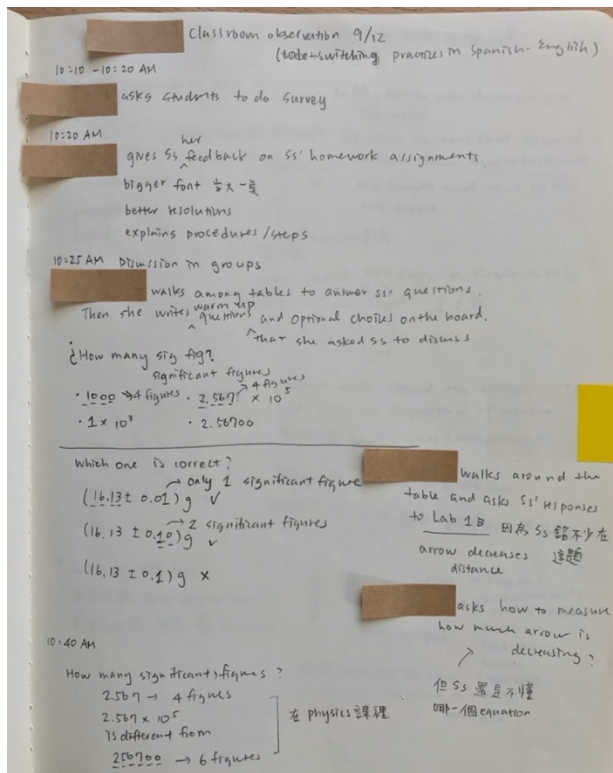 Classroom observation 9/12
(code-switching practices in Spanish-English)
10:10 -10:20 AM
asks students to do survey
10:20 AM
her
gives Ss feedback on Ss' homework assignments.
bigger font 字大一點
better resolutions
explaining procedures/steps
10:25 AM Discussion in groups
walks among tables to answer Ss' questions.
Then she writes warm up questions and optional choices on the board.
that she asked Ss to discuss
¿How many sig fig?
significant figures
• 1000 → 4 figures • 2.567 × 10⁵ → 4 figures
• 1 × 10³ • 2.56700
Which one is correct?
→ only 1 significant figure
(16.13 ± 0.01)g ✓
→ 2 significant figures
(16.13 ± 0.10)g ✓
(16.13 ± 0.1)g ×
walks around the
table and asks Ss' responses
to Lab 1B 因為 Ss 錯不少在
arrow decreases 這題
distance
asks how to measure
how much arrow is
decreasing?
但 Ss 還是不懂
哪一個 equation
10:40 AM
How many significant figures?
2.567 → 4 figures
2.567 × 10⁵
is different from
256700 → 6 figures
在 physics 課裡